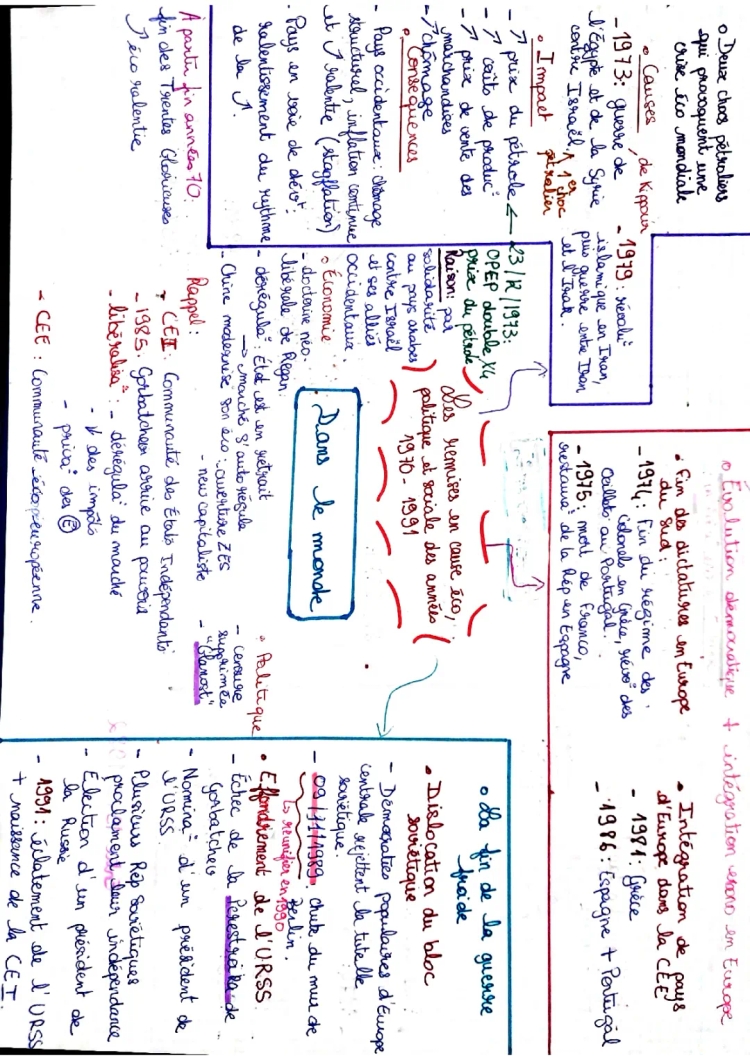 Les remises en cause éco,
politique et sociale des années
1970 - 1991
Dans le monde
o Deux chocs pétroliers
qui provoquent une
crise éco mondiale
• Causes
- 1973 : guerre de Kippour, de
l'Égypte et de la Syrie
contre Israël, 1er choc
pétrolier
- 1979 : révolu°
islamique en Iran,
puis guerre entre Iran
et l'Irak.
• Impact
- ↗ prix du pétrole
- ↗ coûts de produc°
- ↗ prix de vente des
marchandises
- ↗ chômage
• Conséquences
- Pays occidentaux : chômage
structurel, inflation continue
et ↗ ralentie (stagflation)
- Pays en voie de dévt :
ralentissement du rythme
de la ↗.
À partir fin années 70 :
fin des Trentes Glorieuses
↗ éco ralentie
23/12/1973 :
OPEP double X4
prix du pétrole
Raison : par
solidarité
au pays arabes
contre Israël
et ses alliés
occidentaux.
o Économie
- doctrine néo-
libérale de Regan
- dérégula° : État est en retrait
→ marché s'auto régule
- Chine modernise son éco : ouverture ZES
- new capitaliste
• Politique
- censure
supprimée
"Glanost"
Rappel :
• CEI : Communauté des États Indépendants
- 1985 : Gorbatchev arrive au pouvoir
- libéralisa° : - dérégula° du marché
- ↓ des impôts
- priva° des Ⓔ
- CEE : Communauté éco européenne.
o Évolution démocratique + intégration en Europe
• Fin des dictatures en Europe
du Sud :
- 1974 : Fin du régime des
colonels en Grèce, révo° des
Oeillets au Portugal.
- 1975 : mort de Franco,
restaura° de la Rép en Espagne
• Intégration de pays
d'Europe dans la CEE
- 1981 : Grèce
- 1986 : Espagne + Portugal
o La fin de la guerre
froide
• Dislocation du bloc
soviétique
- Démocraties populaires d'Europe
centrale rejettent la tutelle
soviétique.
- 09/11/1989 : chute du mur de
Berlin.
↳ réunifier en 1990
• Effondrement de l'URSS
- Échec de la Perestroïka de
Gorbatchev
- Nomina° d'un président de
l'URSS
- Plusieurs Rép Soviétiques
proclament leur indépendance
- Élection d'un président de
la Russie
- 1991 : éclatement de l'URSS
+ naissance de la CEI.